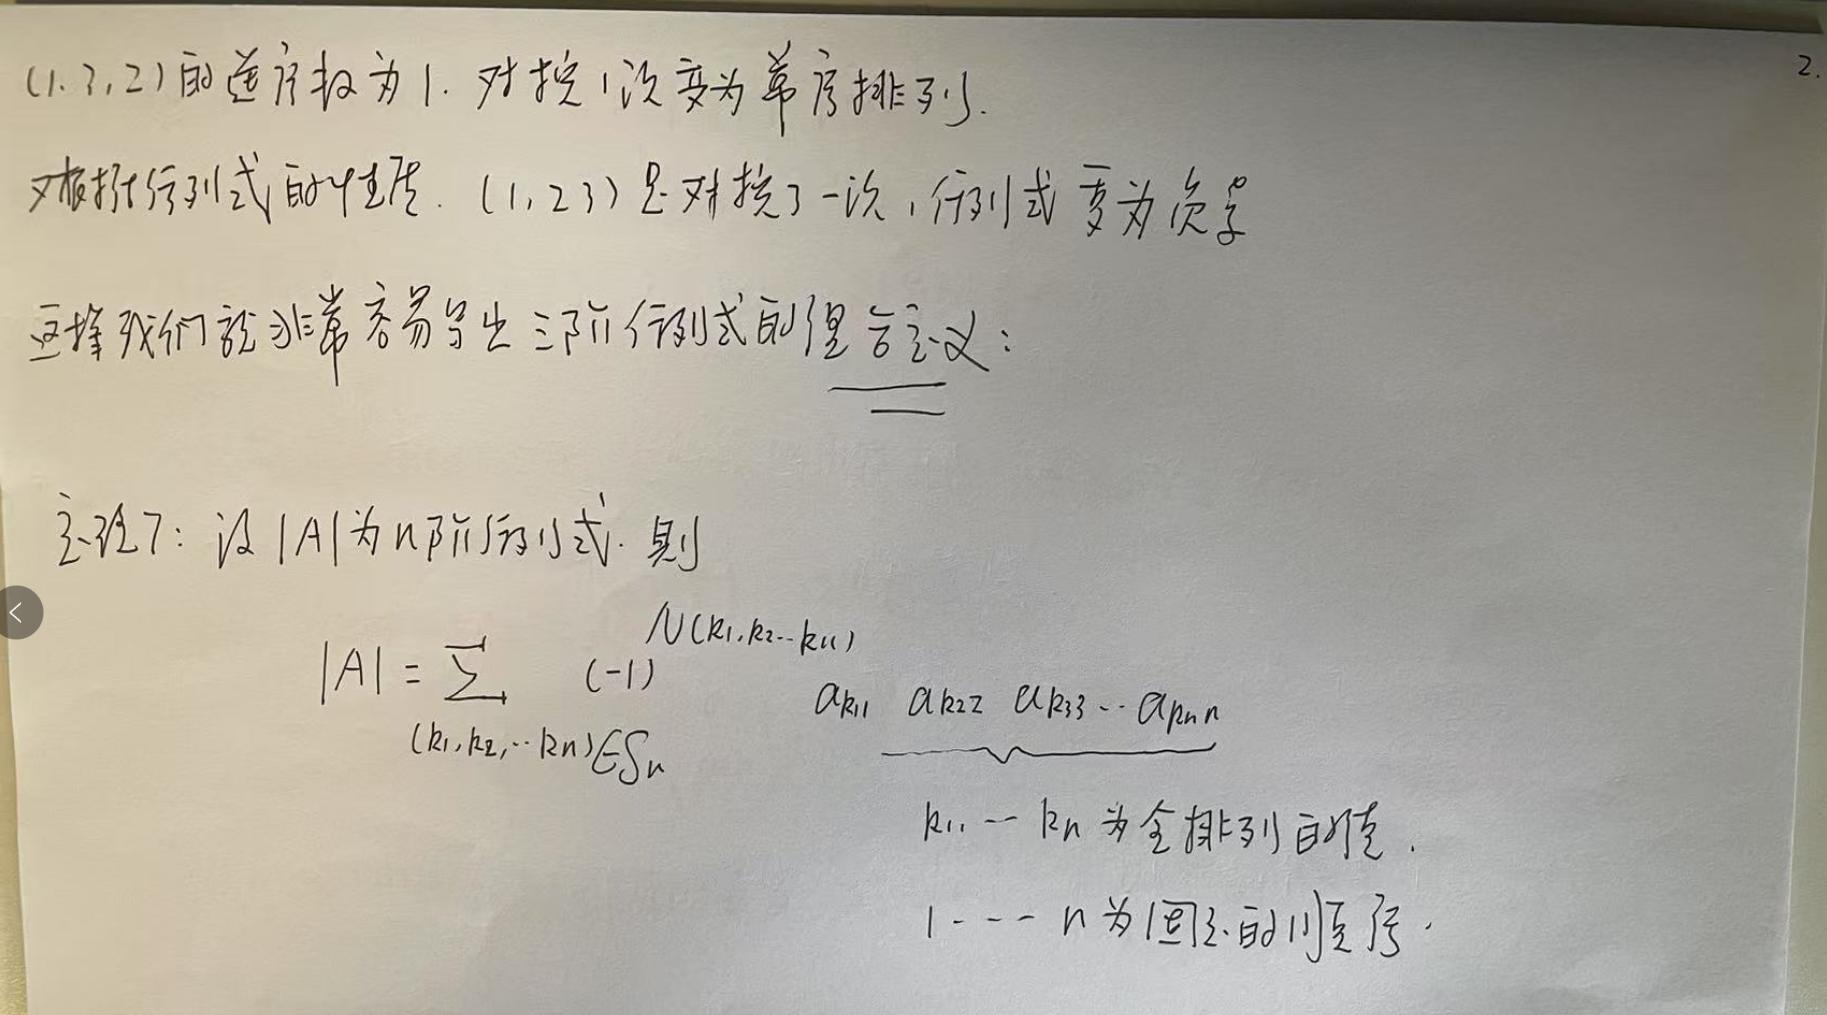 2.
(1.3,2)的逆序数为1. 对换1次变为常序排列.
对根据行列式的性质. (1,23)只对换了一次,行列式变为负号
这样我们就非常容易导出三阶行列式的组合定义:
定理7: 设|A|为n阶行列式. 则
|A| = Σ (-1) N(k1,k2...kn) ak11 ak22 ak33 ... aknn
(k1,k2,...kn)∈Sn
k1, ... kn 为全排列的值.
1 ---- n 为固定的顺序.